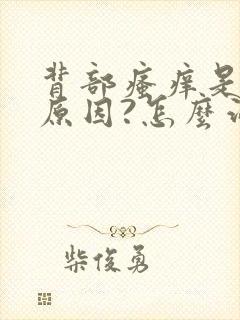 背部瘙痒是
原因?怎麽
柴俊勇